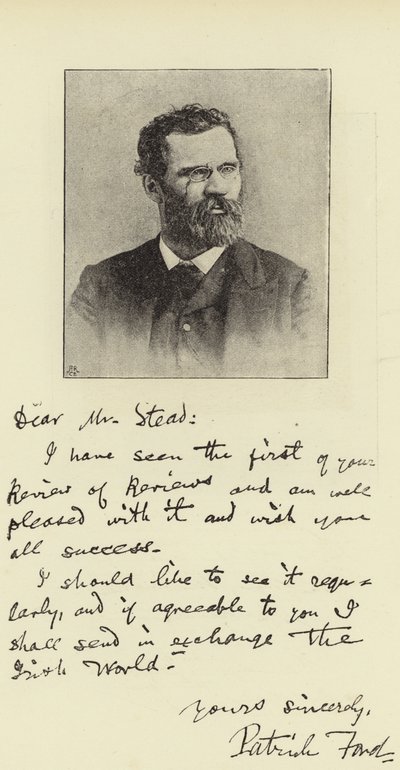 Dear Mr. Stead:
I have seen the first of your
Review of Reviews and am well
pleased with it and wish you
all success.
I should like to see it regu=
larly, and if agreeable to you I
shall send in exchange the
Irish World.
Yours sincerely,
Patrick Ford